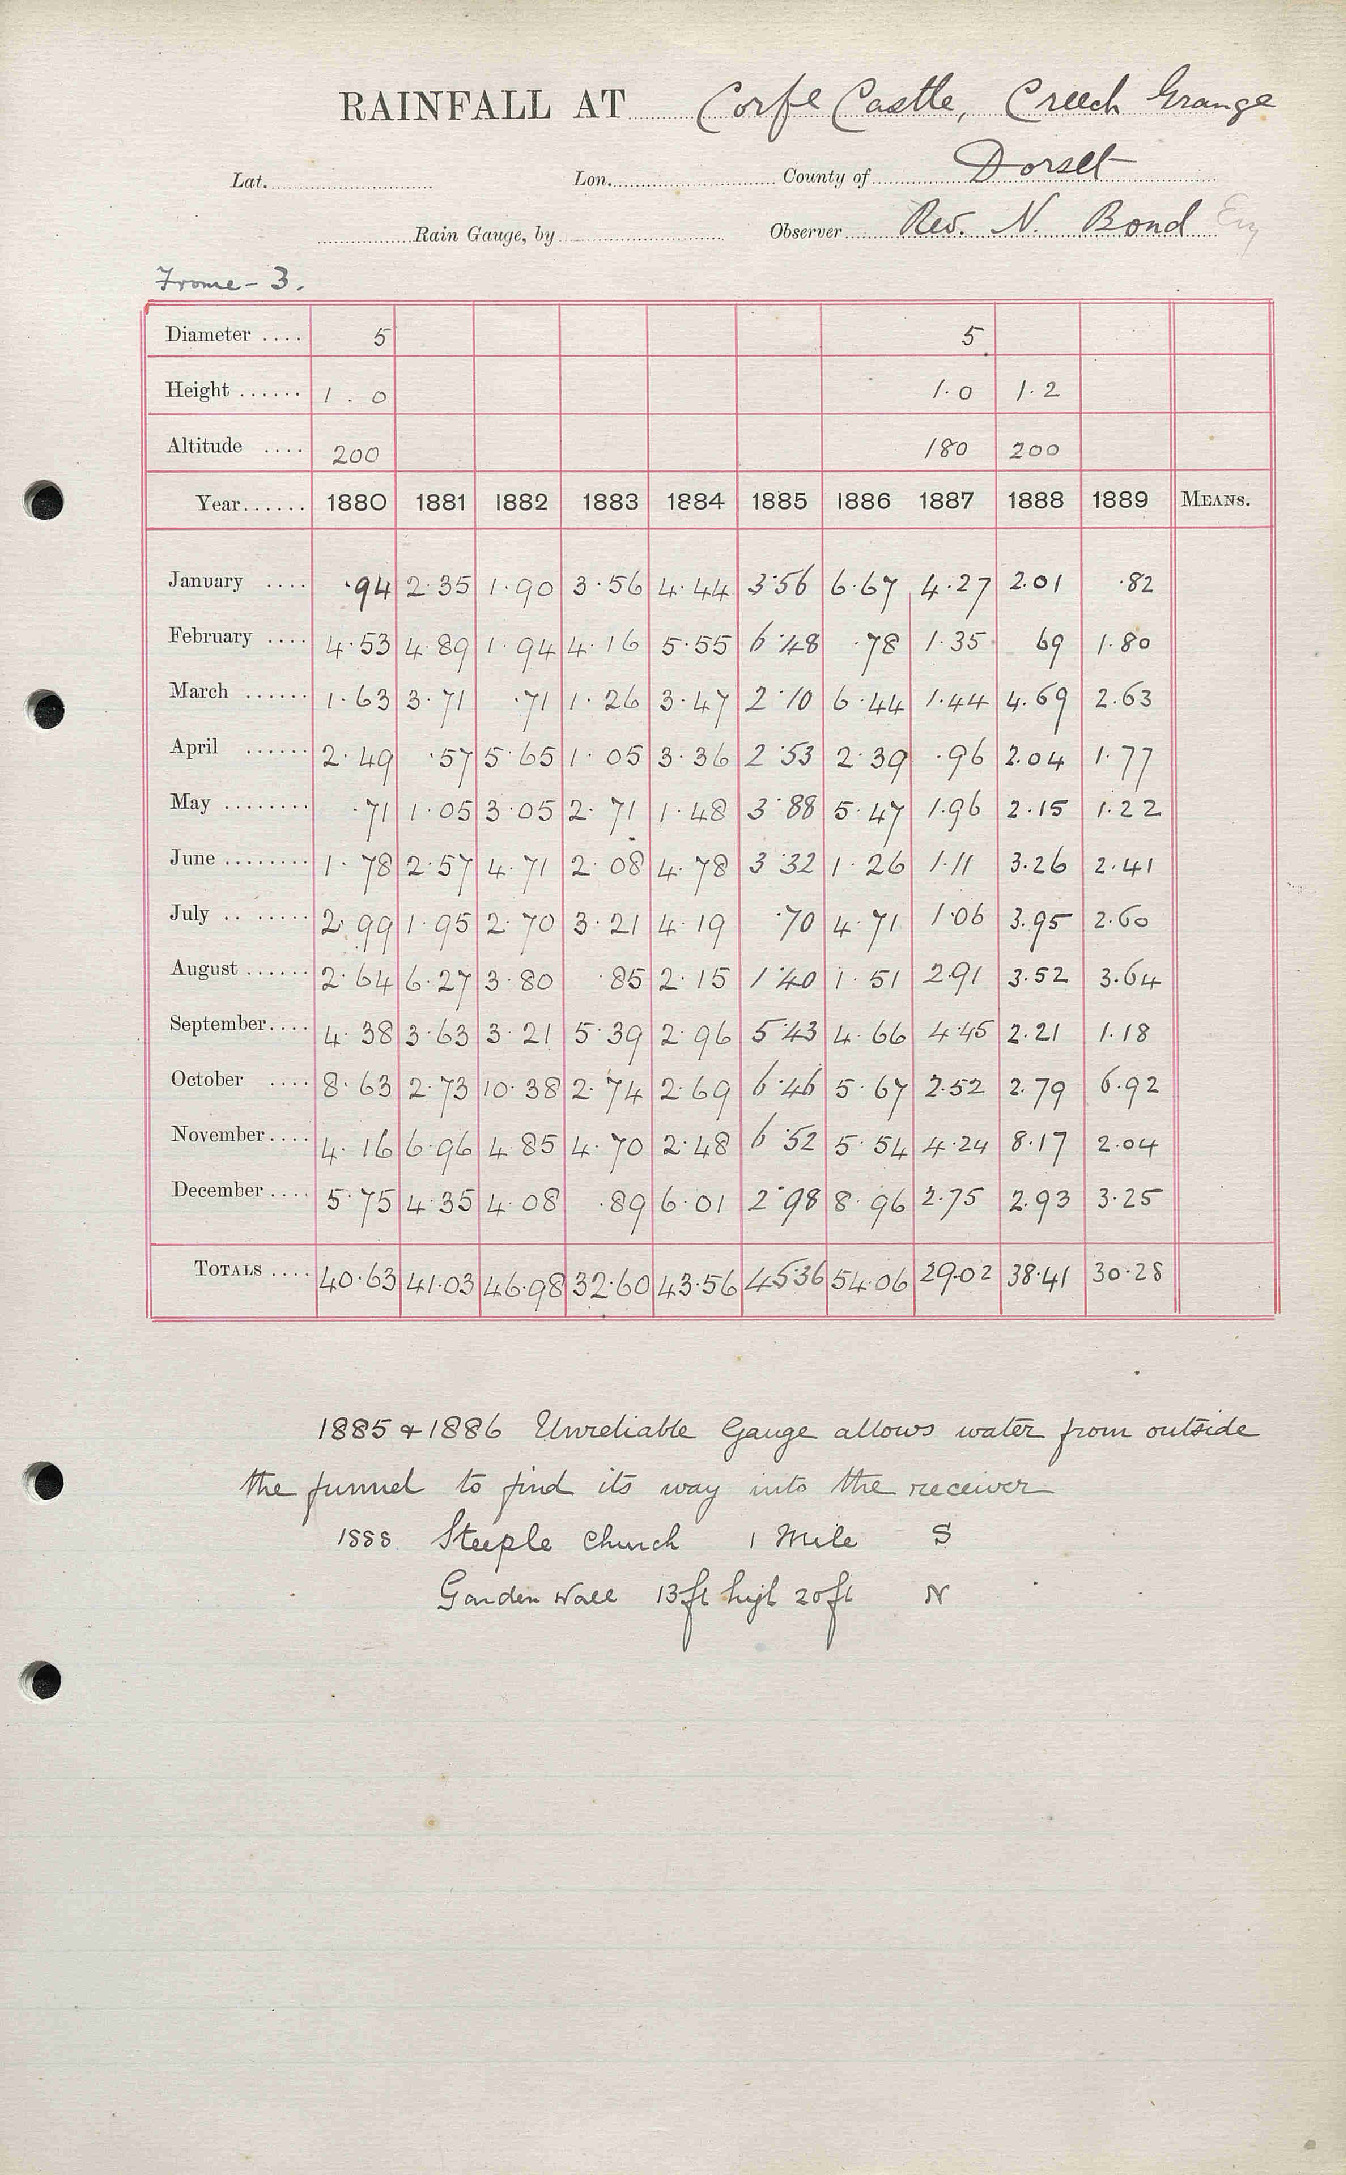 RAINFALL AT Corfe Castle, Creech Grange
Lat. Lon. County of Dorset
Rain Gauge, by Observer Rev. N. Bond
Frome - 3.
Diameter .... 5 5
Height ...... 1.0 1.0 1.2
Altitude .... 200 180 200
Year...... 1880 1881 1882 1883 1884 1885 1886 1887 1888 1889 MEANS.
January .... .94 2.35 1.90 3.56 4.44 3.56 6.67 4.27 2.01 .82
February .... 4.53 4.89 1.94 4.16 5.55 6.48 .78 1.35 69 1.80
March ...... 1.63 3.71 .71 1.26 3.47 2.10 6.44 1.44 4.69 2.63
April ...... 2.49 .57 5.65 1.05 3.36 2.53 2.39 .96 2.04 1.77
May ........ .71 1.05 3.05 2.71 1.48 3.88 5.47 1.96 2.15 1.22
June ........ 1.78 2.57 4.71 2.08 4.78 3.32 1.26 1.11 3.26 2.41
July .. ..... 2.99 1.95 2.70 3.21 4.19 .70 4.71 1.06 3.95 2.60
August ...... 2.64 6.27 3.80 .85 2.15 1.40 1.51 2.91 3.52 3.64
September.... 4.38 3.63 3.21 5.39 2.96 5.43 4.66 4.45 2.21 1.18
October .... 8.63 2.73 10.38 2.74 2.69 6.46 5.67 2.52 2.79 6.92
November.... 4.16 6.96 4.85 4.70 2.48 6.52 5.54 4.24 8.17 2.04
December .... 5.75 4.35 4.08 .89 6.01 2.98 8.96 2.75 2.93 3.25
TOTALS .... 40.63 41.03 46.98 32.60 43.56 45.36 54.06 29.02 38.41 30.28
1885 & 1886 Unreliable Gauge allows water from outside
the funnel to find its way into the receiver
1888 Steeple Church 1 Mile S
Garden Wall 13ft high 20ft N